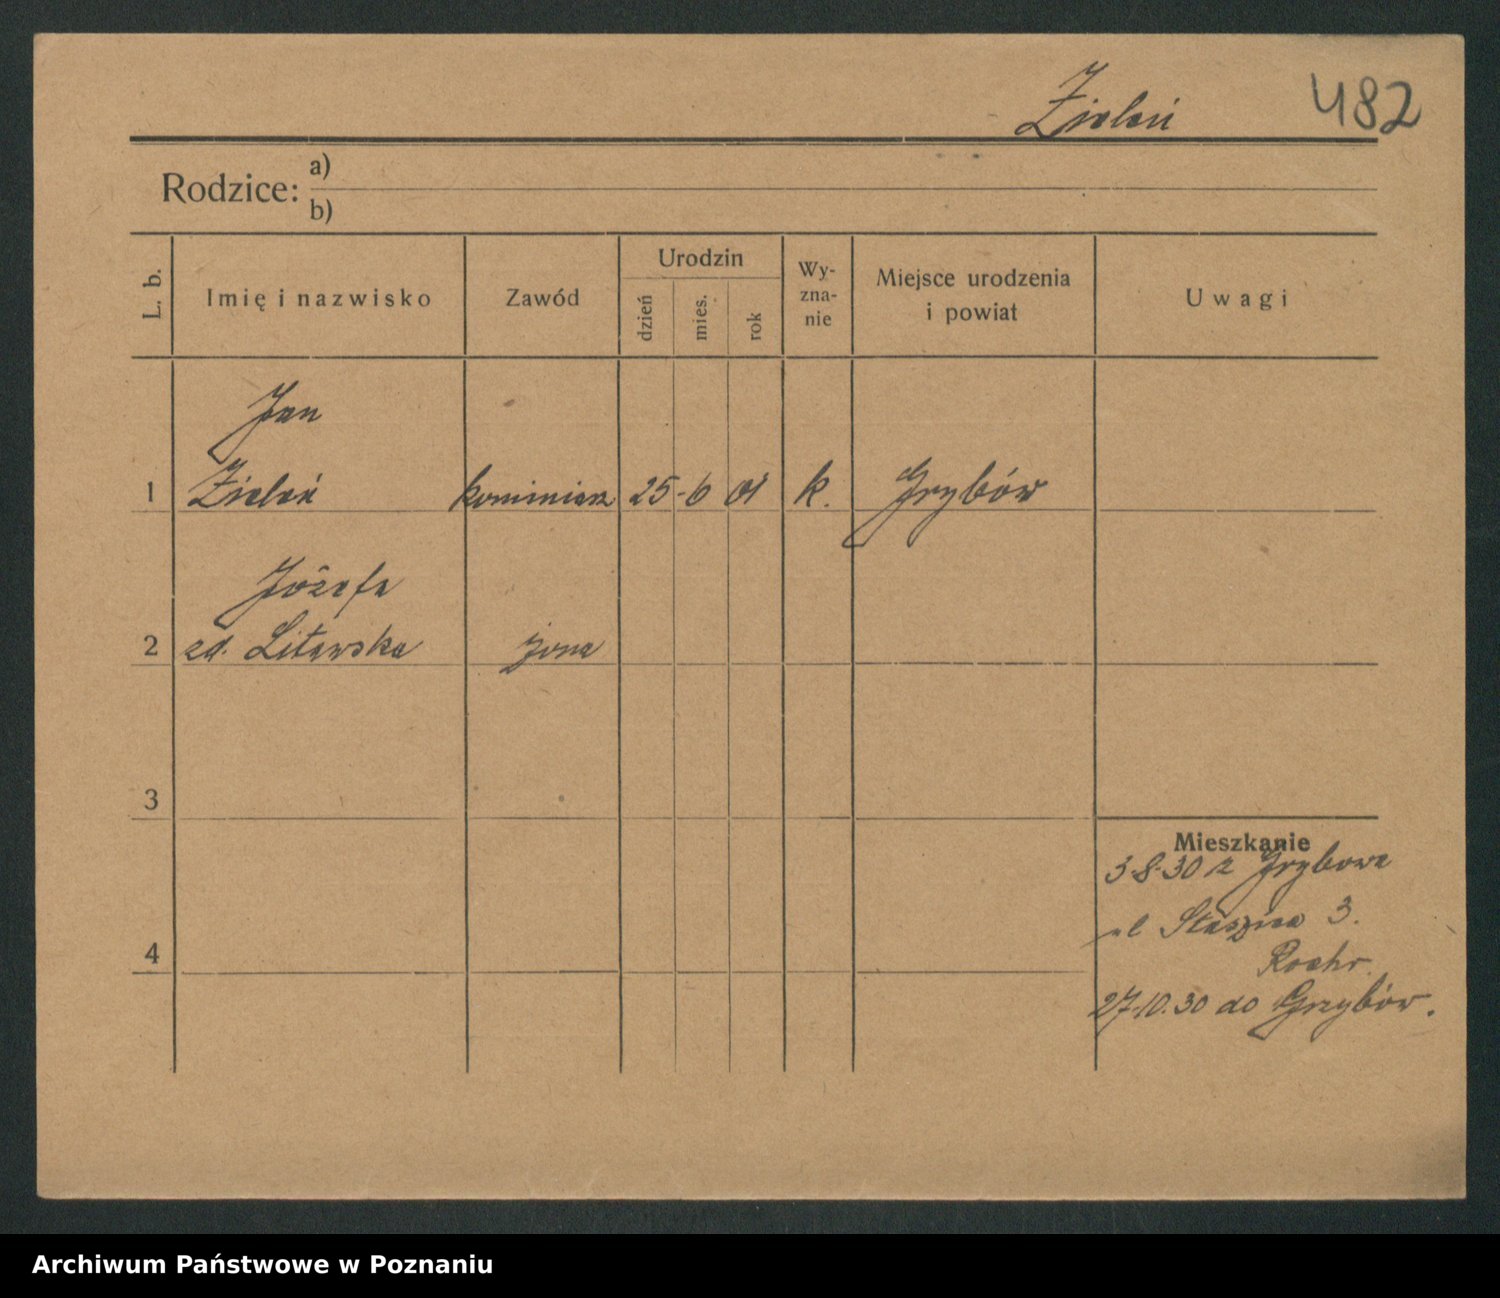 Zieleń 482
Rodzice: a)
b)
L. b. Imię i nazwisko Zawód Urodzin dzień mies. rok Wy-zna-nie Miejsce urodzenia i powiat Uwagi
Jan
1 Zieleń kominiarz 25-6 01 k. Grybów
Józefa
2 zd. Litawska żona
3
Mieszkanie
3-8-30 z Grybowa
ul Staszica 3.
4
Roehr.
27.10.30 do Grzybów.
Archiwum Państwowe w Poznaniu